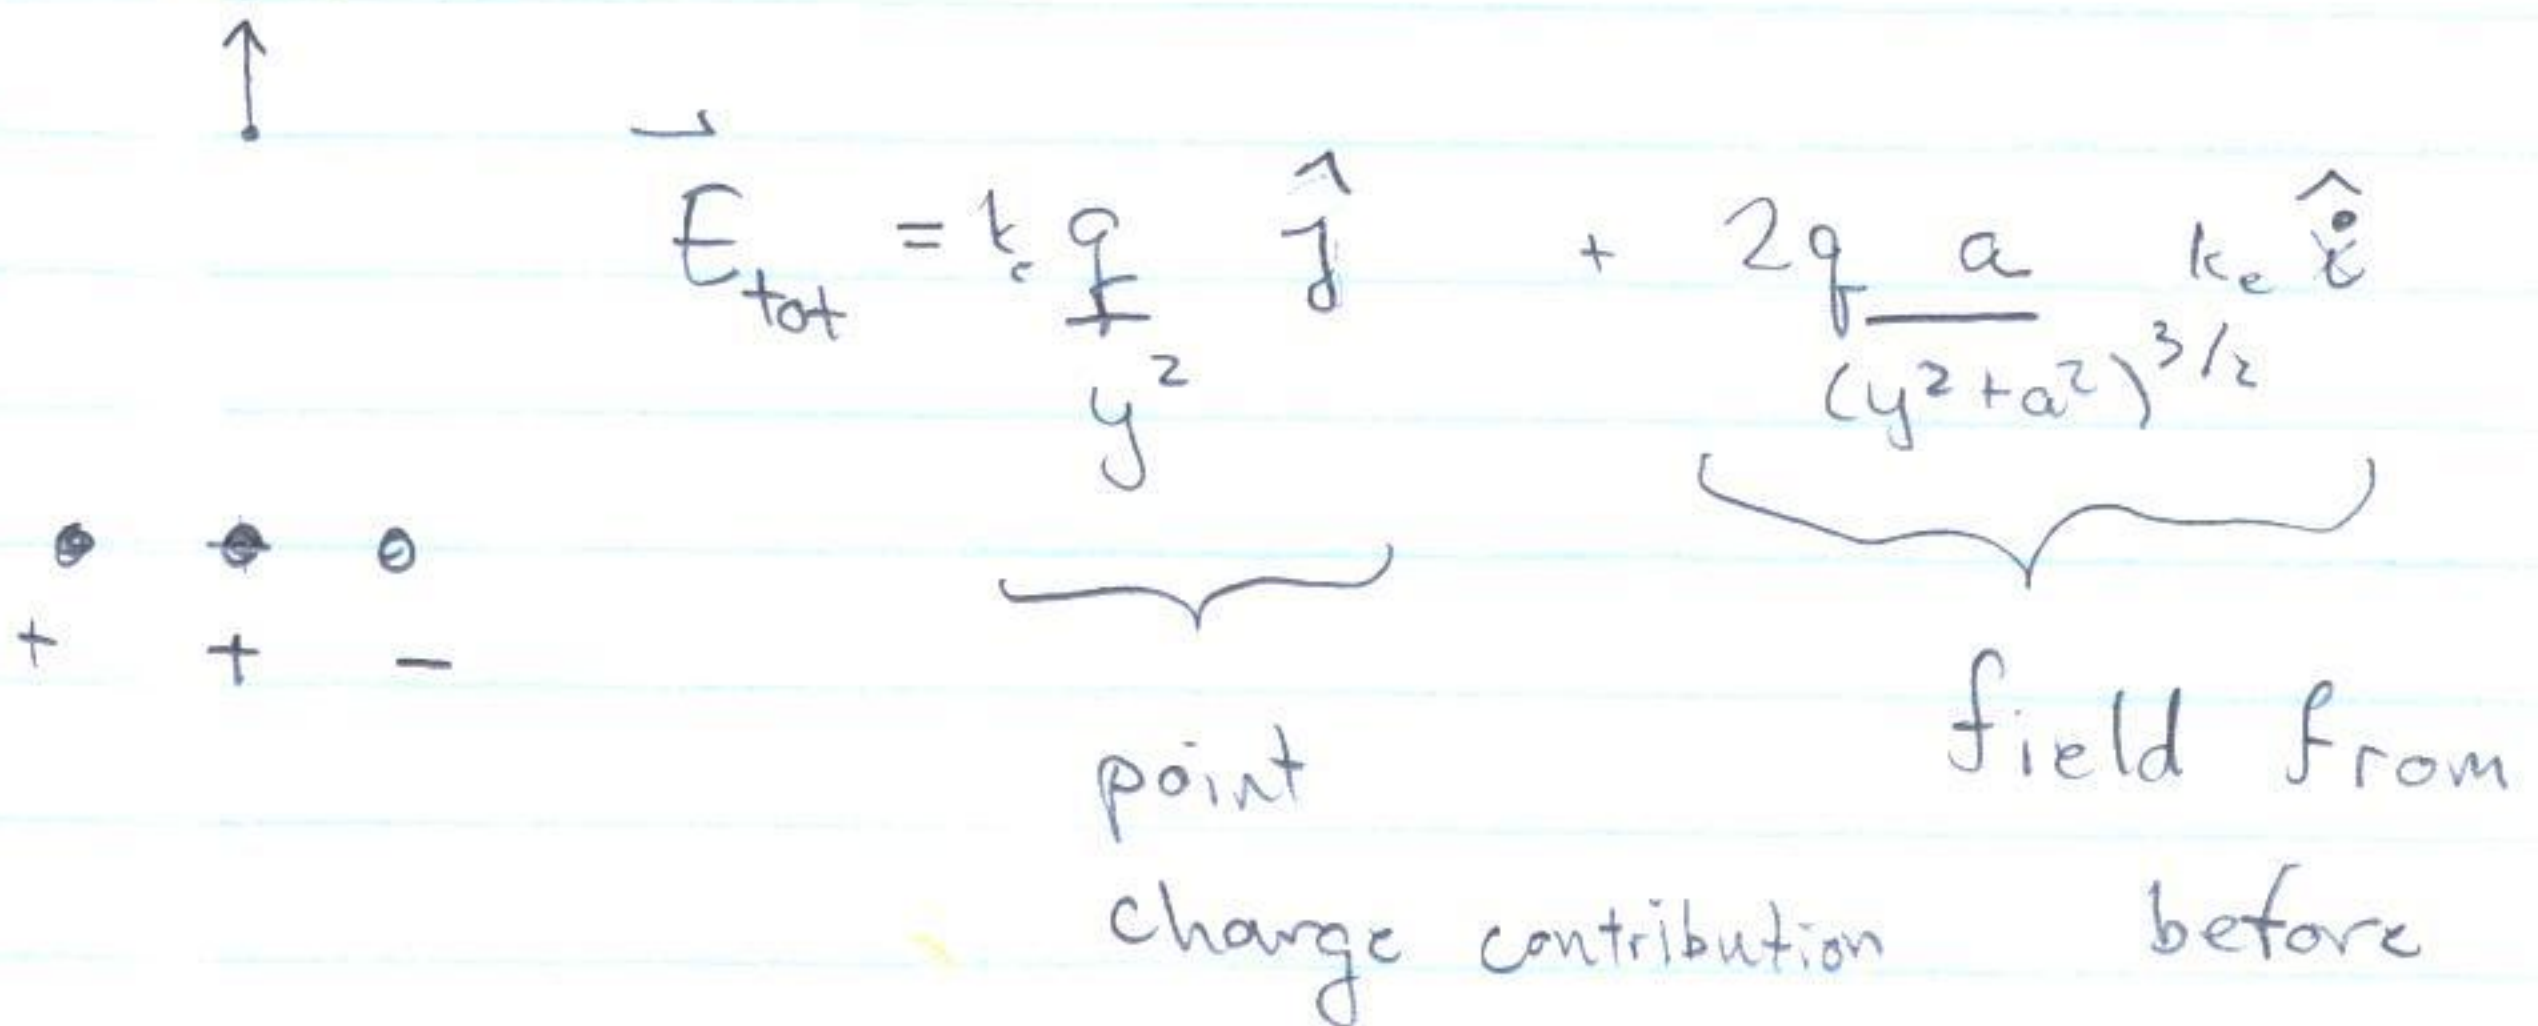 E⃗_tot = k_e q/y² ĵ + 2q a/(y²+a²)^3/2 k_e î
+ + −
point
charge contribution
field from
before